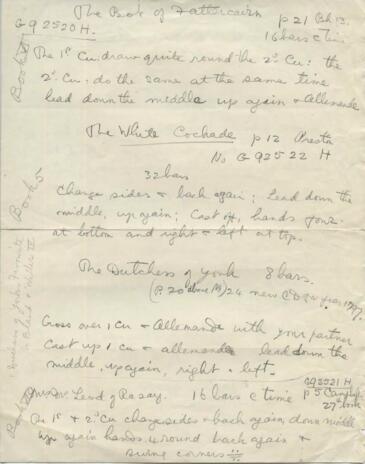 The Book of Fattercairn p 21 Bk 13.
G 92520 H. 16 bars c time
The 1st Cu: draw quite round the 2d Cu: the
2d Cu: do the same at the same time
lead down the middle up again & Allemande
The White Cockade p 12 Preston
No G 92522 H
32 bars
Change sides & back again; Lead down the
middle, up again; Cast off, hands four
at bottom and right & left at top.
The Dutchess of York 8 bars.
(P. 20 above) 24 new CDs for 1797.
Cross over 1 Cu & Allemande with your partner
Cast up 1 Cu & allemande lead down the
middle, up again, right & left.
G 92521 H
Lord of Rasay. 16 bars c time p 5 Campbell
27th book
The 1st & 2d Cu change sides & back again, down middle
up again hands 4 round back again &
swing corners
Book
Book 5